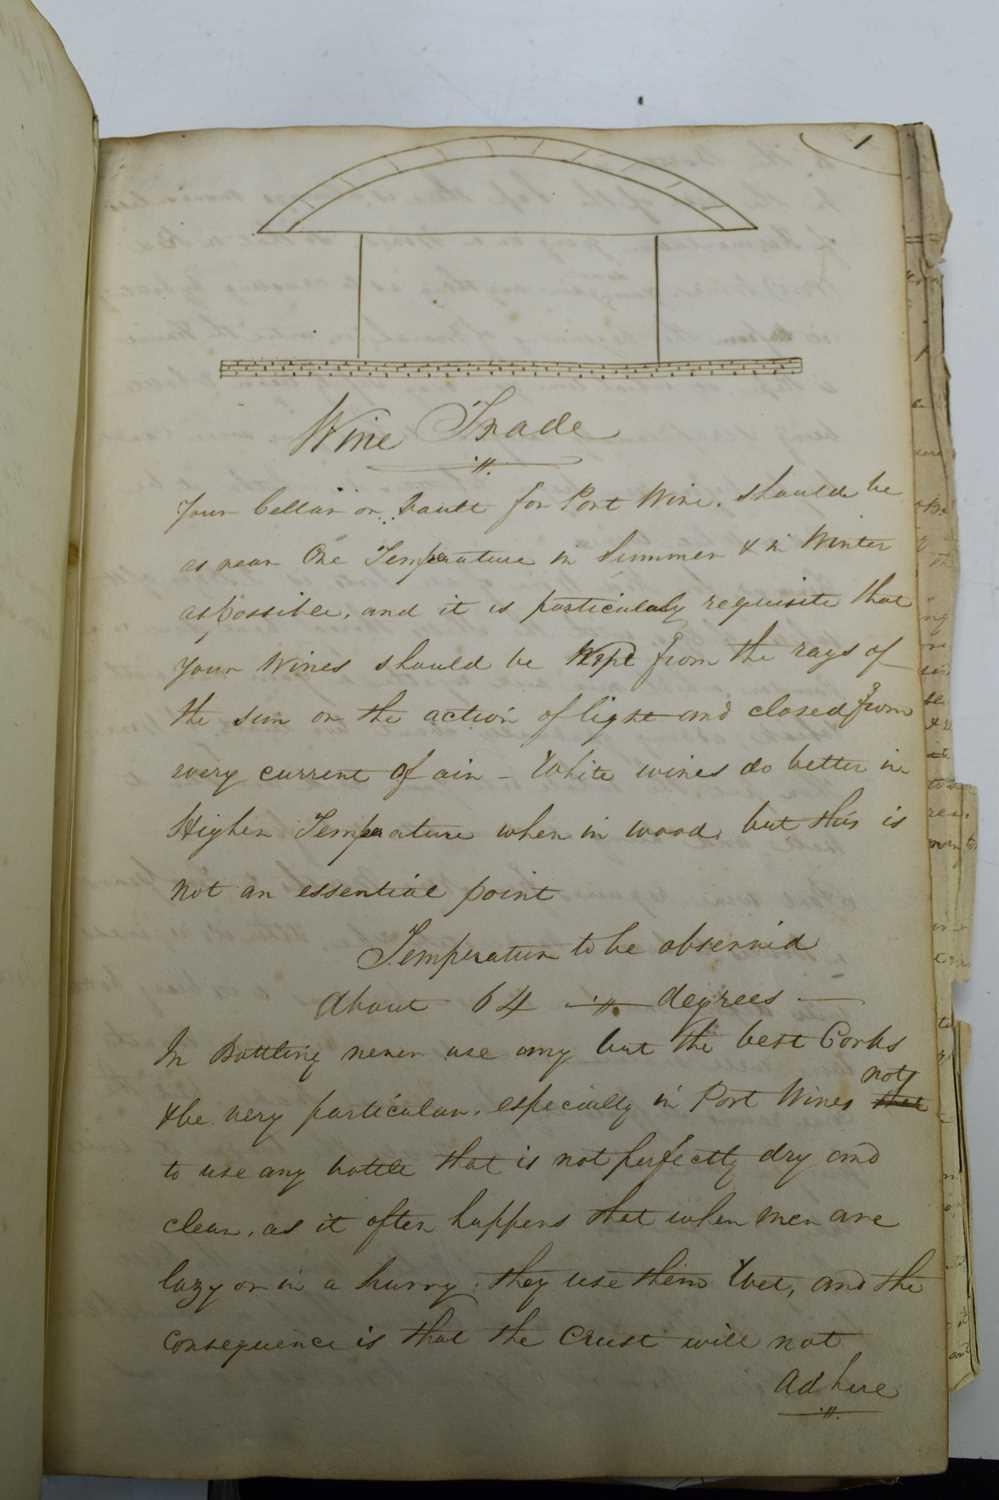 1
Wine Trade
Your Cellar or Vault for Port Wine. should be
as near One Temperature in Summer & in Winter
as possible. and it is particulaly requisite that
your Wines should be Kept from the rays of
the sun or the action of light and closed from
every current of air - White wines do better in
Higher Temperature when in wood. but this is
not an essential point
Temperature to be observid
about 64 degrees
In Bottling never use any but the best Corks
& be very particular. especially in Port Wines not
to use any bottle that is not perfectly dry and
clear. as it often happens that when men are
lazy or in a hurry. they use them Wet, and the
consequence is that the Crust will not
adhere